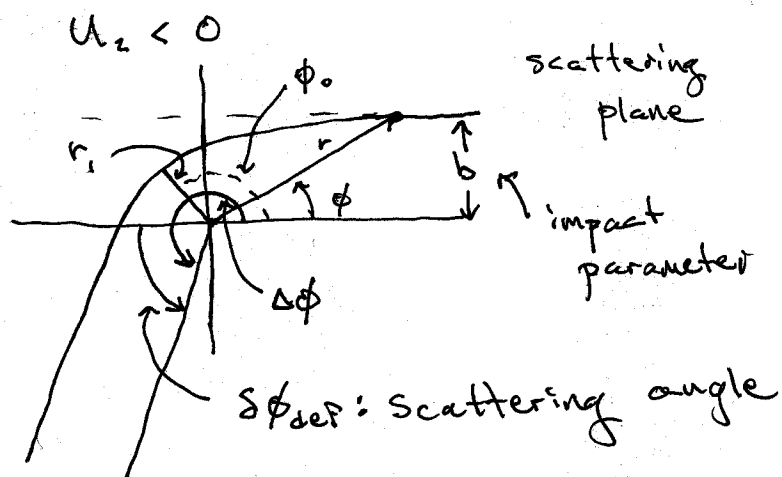 U₂ < 0
scattering
plane
ϕ₀
r₁
r
b
ϕ
impact
parameter
Δϕ
δϕdef: scattering angle